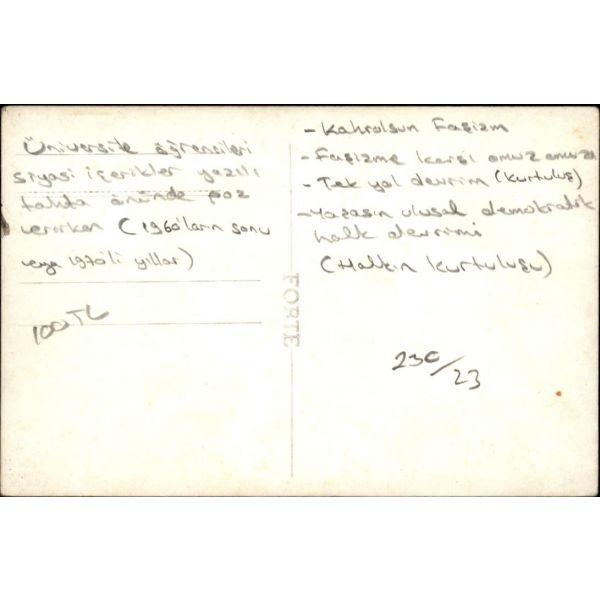 Üniversite öğrencileri
siyasi içerikler yazılı
tahta önünde poz
verirken (1960'ların sonu
veya 1970'li yıllar)
100TL
- Kahrolsun Faşizm
- Faşizme karşı omuz omuza
- Tek yol devrim (Kurtuluş)
- Yaşasın ulusal demokratik
halk devrimi
(Halkın Kurtuluşu)
FORTE
230/23